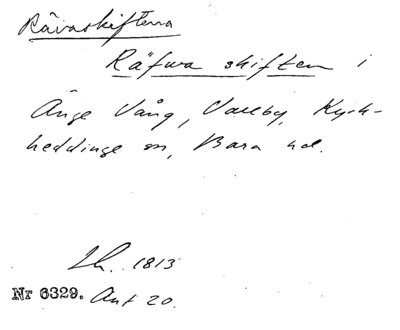 Rävaskiftena
Räfwa skiften i
Änge Vång, Vallby, Kyrk-
heddinge sn, Bara hd.
1813
Nr 6329. Akt 20.